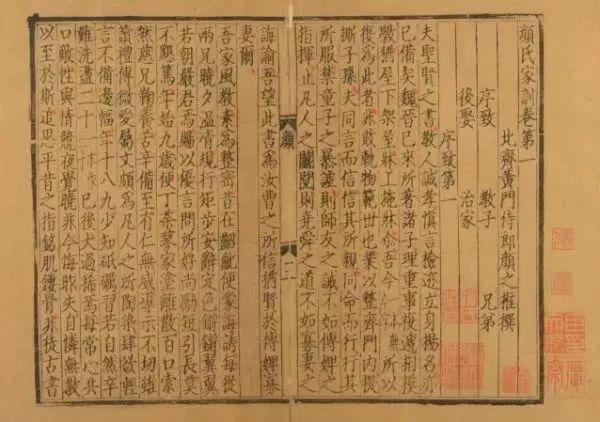 顔氏家訓卷第一
北齊黃門侍郎顔之推撰
序致 教子 兄弟
後娶 治家
序致第一
夫聖賢之書教人誠孝慎言檢迹立身揚名亦
已備矣魏晉已來所著諸子理重事複遞相模
斆猶屋下架屋牀上施牀爾吾今所以
復爲此者非敢軌物範世也業以整齊門內提
撕子孫夫同言而信信其所親同命而行行其
所服禁童子之暴謔則師友之誡不如傅婢之
指揮止凡人之鬬鬩則堯舜之道不如寡妻之
誨諭吾望此書爲汝曹之所信猶賢於傅婢寡
妻爾
顔
吾家風教素爲整密昔在齠齔便蒙誨誘每從
兩兄曉夕温凊規行矩步安辭定色鏘鏘翼翼
若朝嚴君焉賜以優言問所好尚勵短引長莫
不懇篤年始九歲便丁荼蓼家塗離散百口索
然慈兄鞠養苦辛備至有仁無威導示不切雖
讀禮傳微愛屬文頗爲凡人之所陶染肆欲輕
言不備邊幅年十八九少知砥礪習若自然卒
難洗盪二十已後大過稀焉每常心共
口敵性與情競夜覺曉非今悔昨失自憐無教
以至於斯追思平昔之指銘肌鏤骨非徒古書